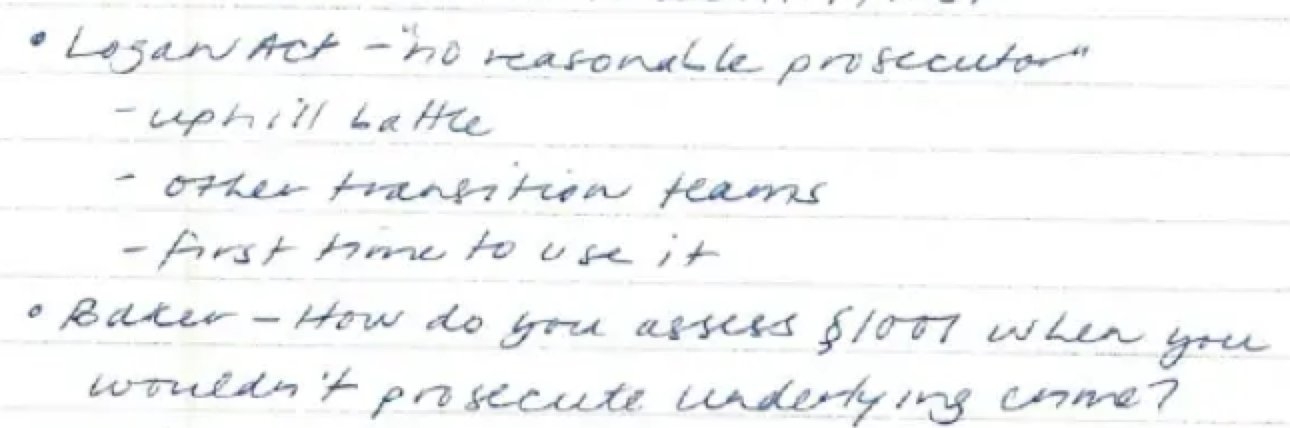 • Logan Act - "no reasonable prosecutor"
- uphill battle
- other transition teams
- first time to use it
• Baker - How do you assess §1001 when you
wouldn't prosecute underlying crime?